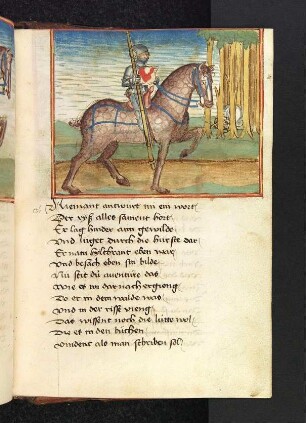 Niemant antwirt im ein wort
Der vff alles sament hort
Er lag hinder aim gewilde
Vnd luget durch die hurste dar
Er nam hiltbrant eben war
Vnd besach eben sin bilde
Nu seit dú auenture das
Wie es im dar nach ergieng
Do er in dem walde was
Vnd in der risse vieng
Das wissent noch die lútte wol
Die es in den búchen
vindent als man schriben sol